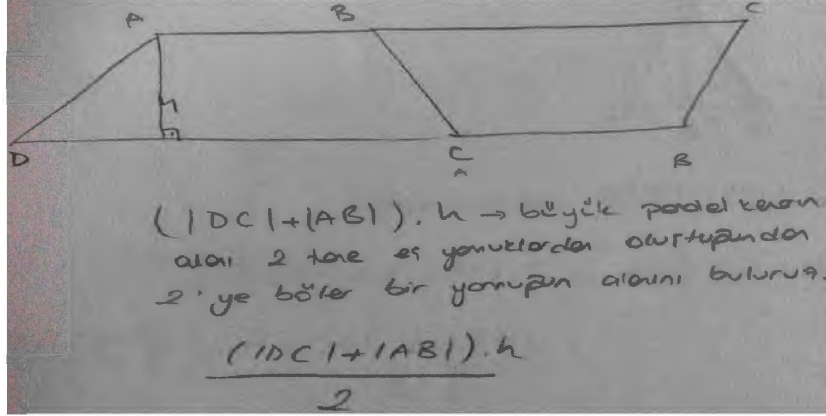 A B C
h
D C B
A
(|DC|+|AB|). h → büyük paralelkenarın
alanı 2 tane eş yamuklardan oluştuğundan
2'ye böler bir yamuğun alanını buluruz.
(|DC|+|AB|).h
2